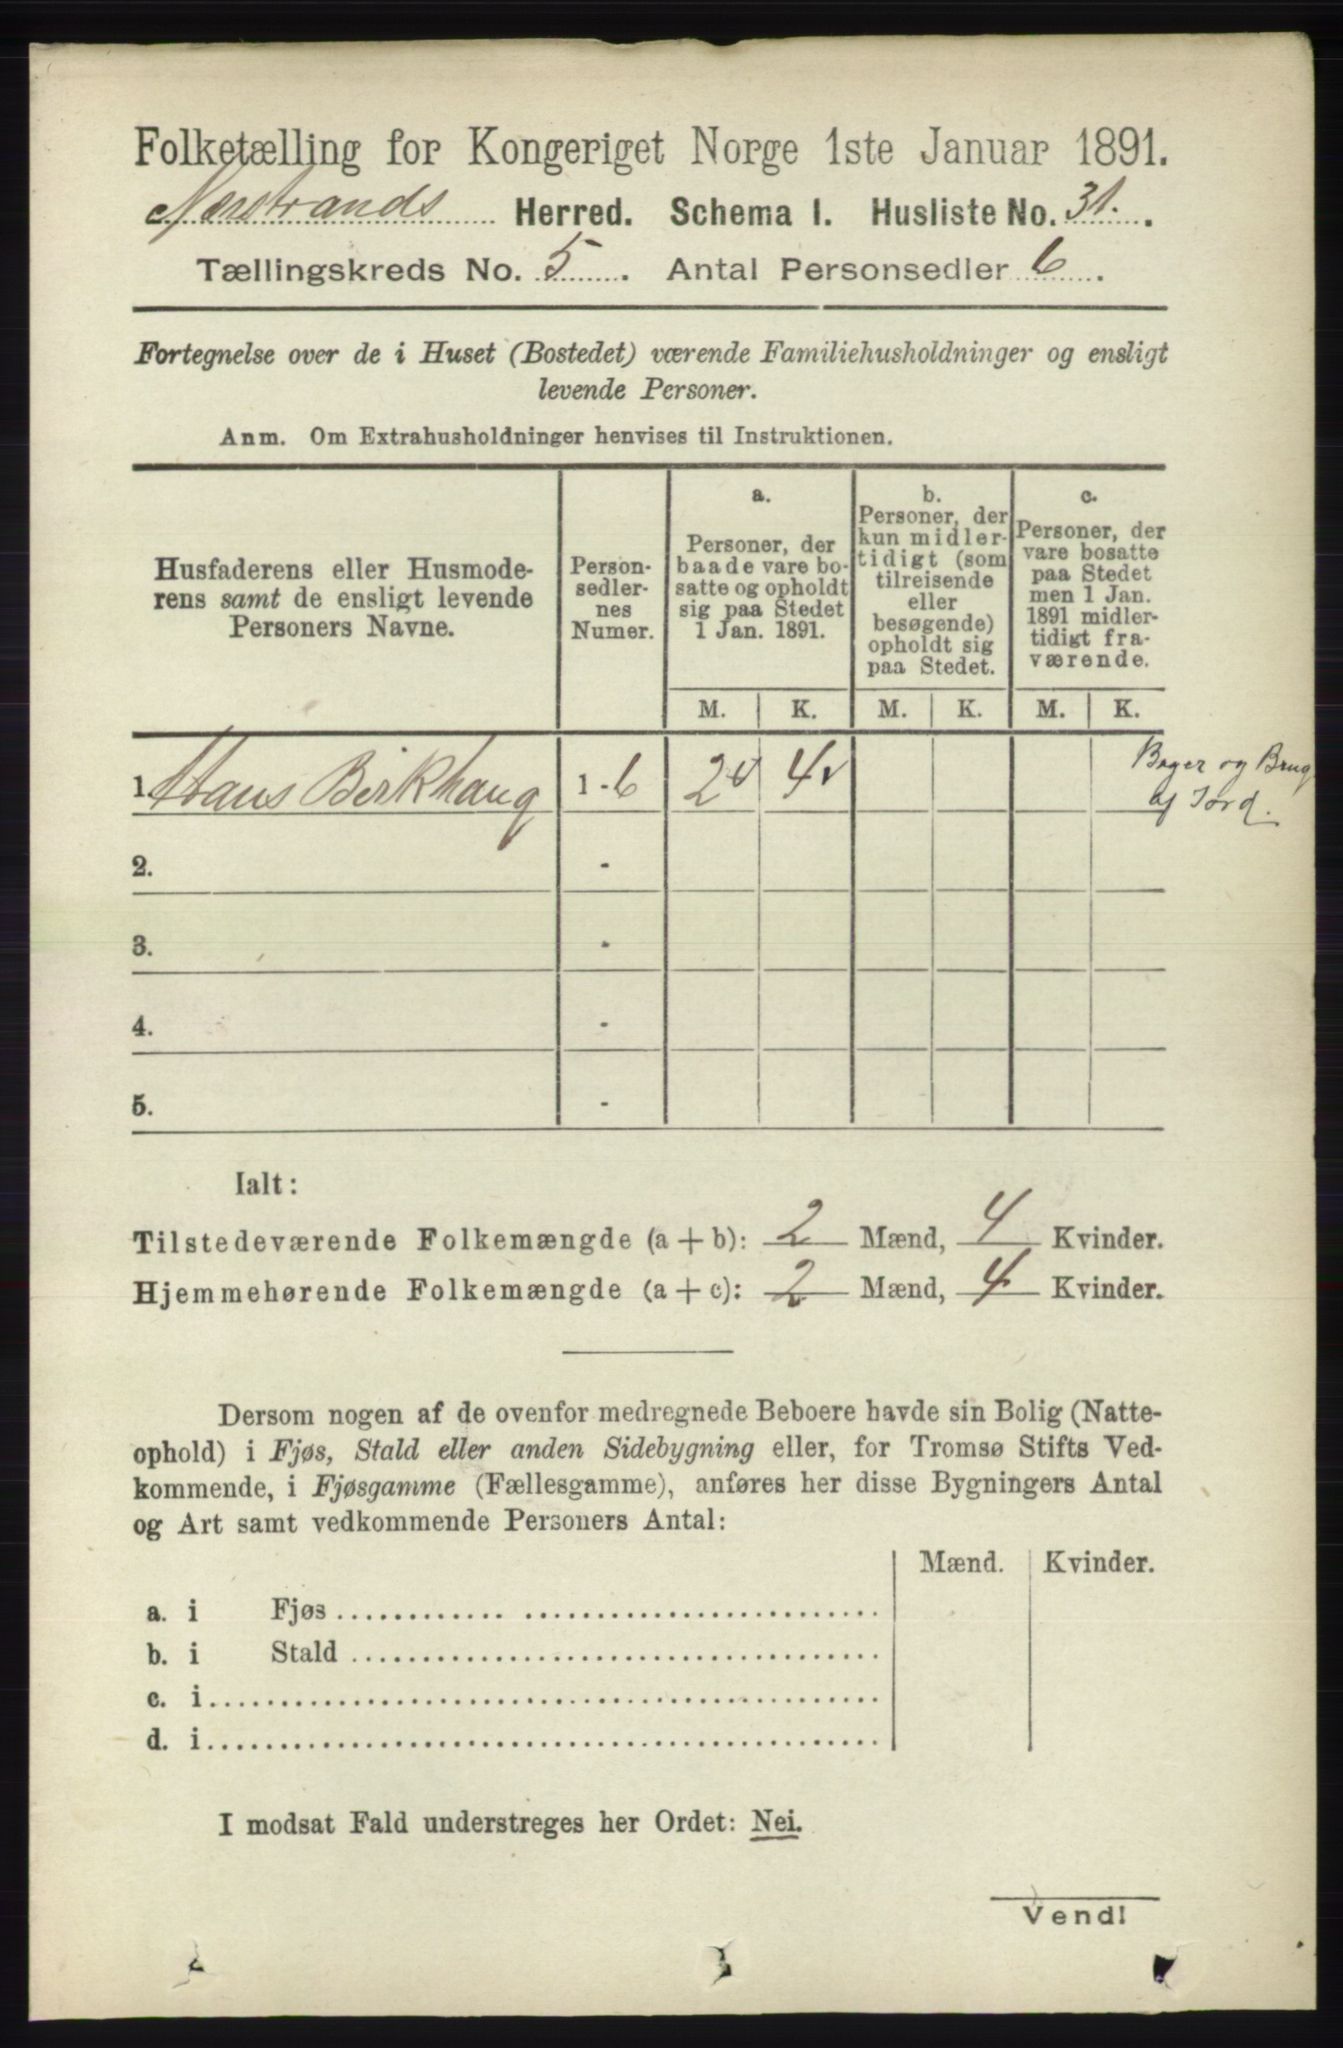 Folketælling for Kongeriget Norge 1ste Januar 1891.
Nærstrands Herred. Schema I. Husliste No. 31.
Tællingskreds No. 5. Antal Personsedler 6.
Fortegnelse over de i Huset (Bostedet) værende Familiehusholdninger og ensligt
levende Personer.
Anm. Om Extrahusholdninger henvises til Instruktionen.
Husfaderens eller Husmode-
rens samt de ensligt levende
Personers Navne.
Person-
sedler-
nes
Numer.
a.
Personer, der
baade vare bo-
satte og opholdt
sig paa Stedet
1 Jan. 1891.
b.
Personer, der
kun midler-
tidigt (som
tilreisende
eller
besøgende)
opholdt sig
paa Stedet.
c.
Personer, der
vare bosatte
paa Stedet
men 1 Jan.
1891 midler-
tidigt fra-
værende.
M. K. M. K. M. K.
1. Hans Birkhaug 1 - 6 2 4 og Brug
af Jord.
2. -
3. -
4. -
5. -
Ialt:
Tilstedeværende Folkemængde (a + b): 2 Mænd, 4 Kvinder.
Hjemmehørende Folkemængde (a + c): 2 Mænd, 4 Kvinder.
Dersom nogen af de ovenfor medregnede Beboere havde sin Bolig (Natte-
ophold) i Fjøs, Stald eller anden Sidebygning eller, for Tromsø Stifts Ved-
kommende, i Fjøsgamme (Fællesgamme), anføres her disse Bygningers Antal
og Art samt vedkommende Personers Antal:
Mænd. Kvinder.
a. i Fjøs
b. i Stald
c. i
d. i
I modsat Fald understreges her Ordet: Nei.
Vend!